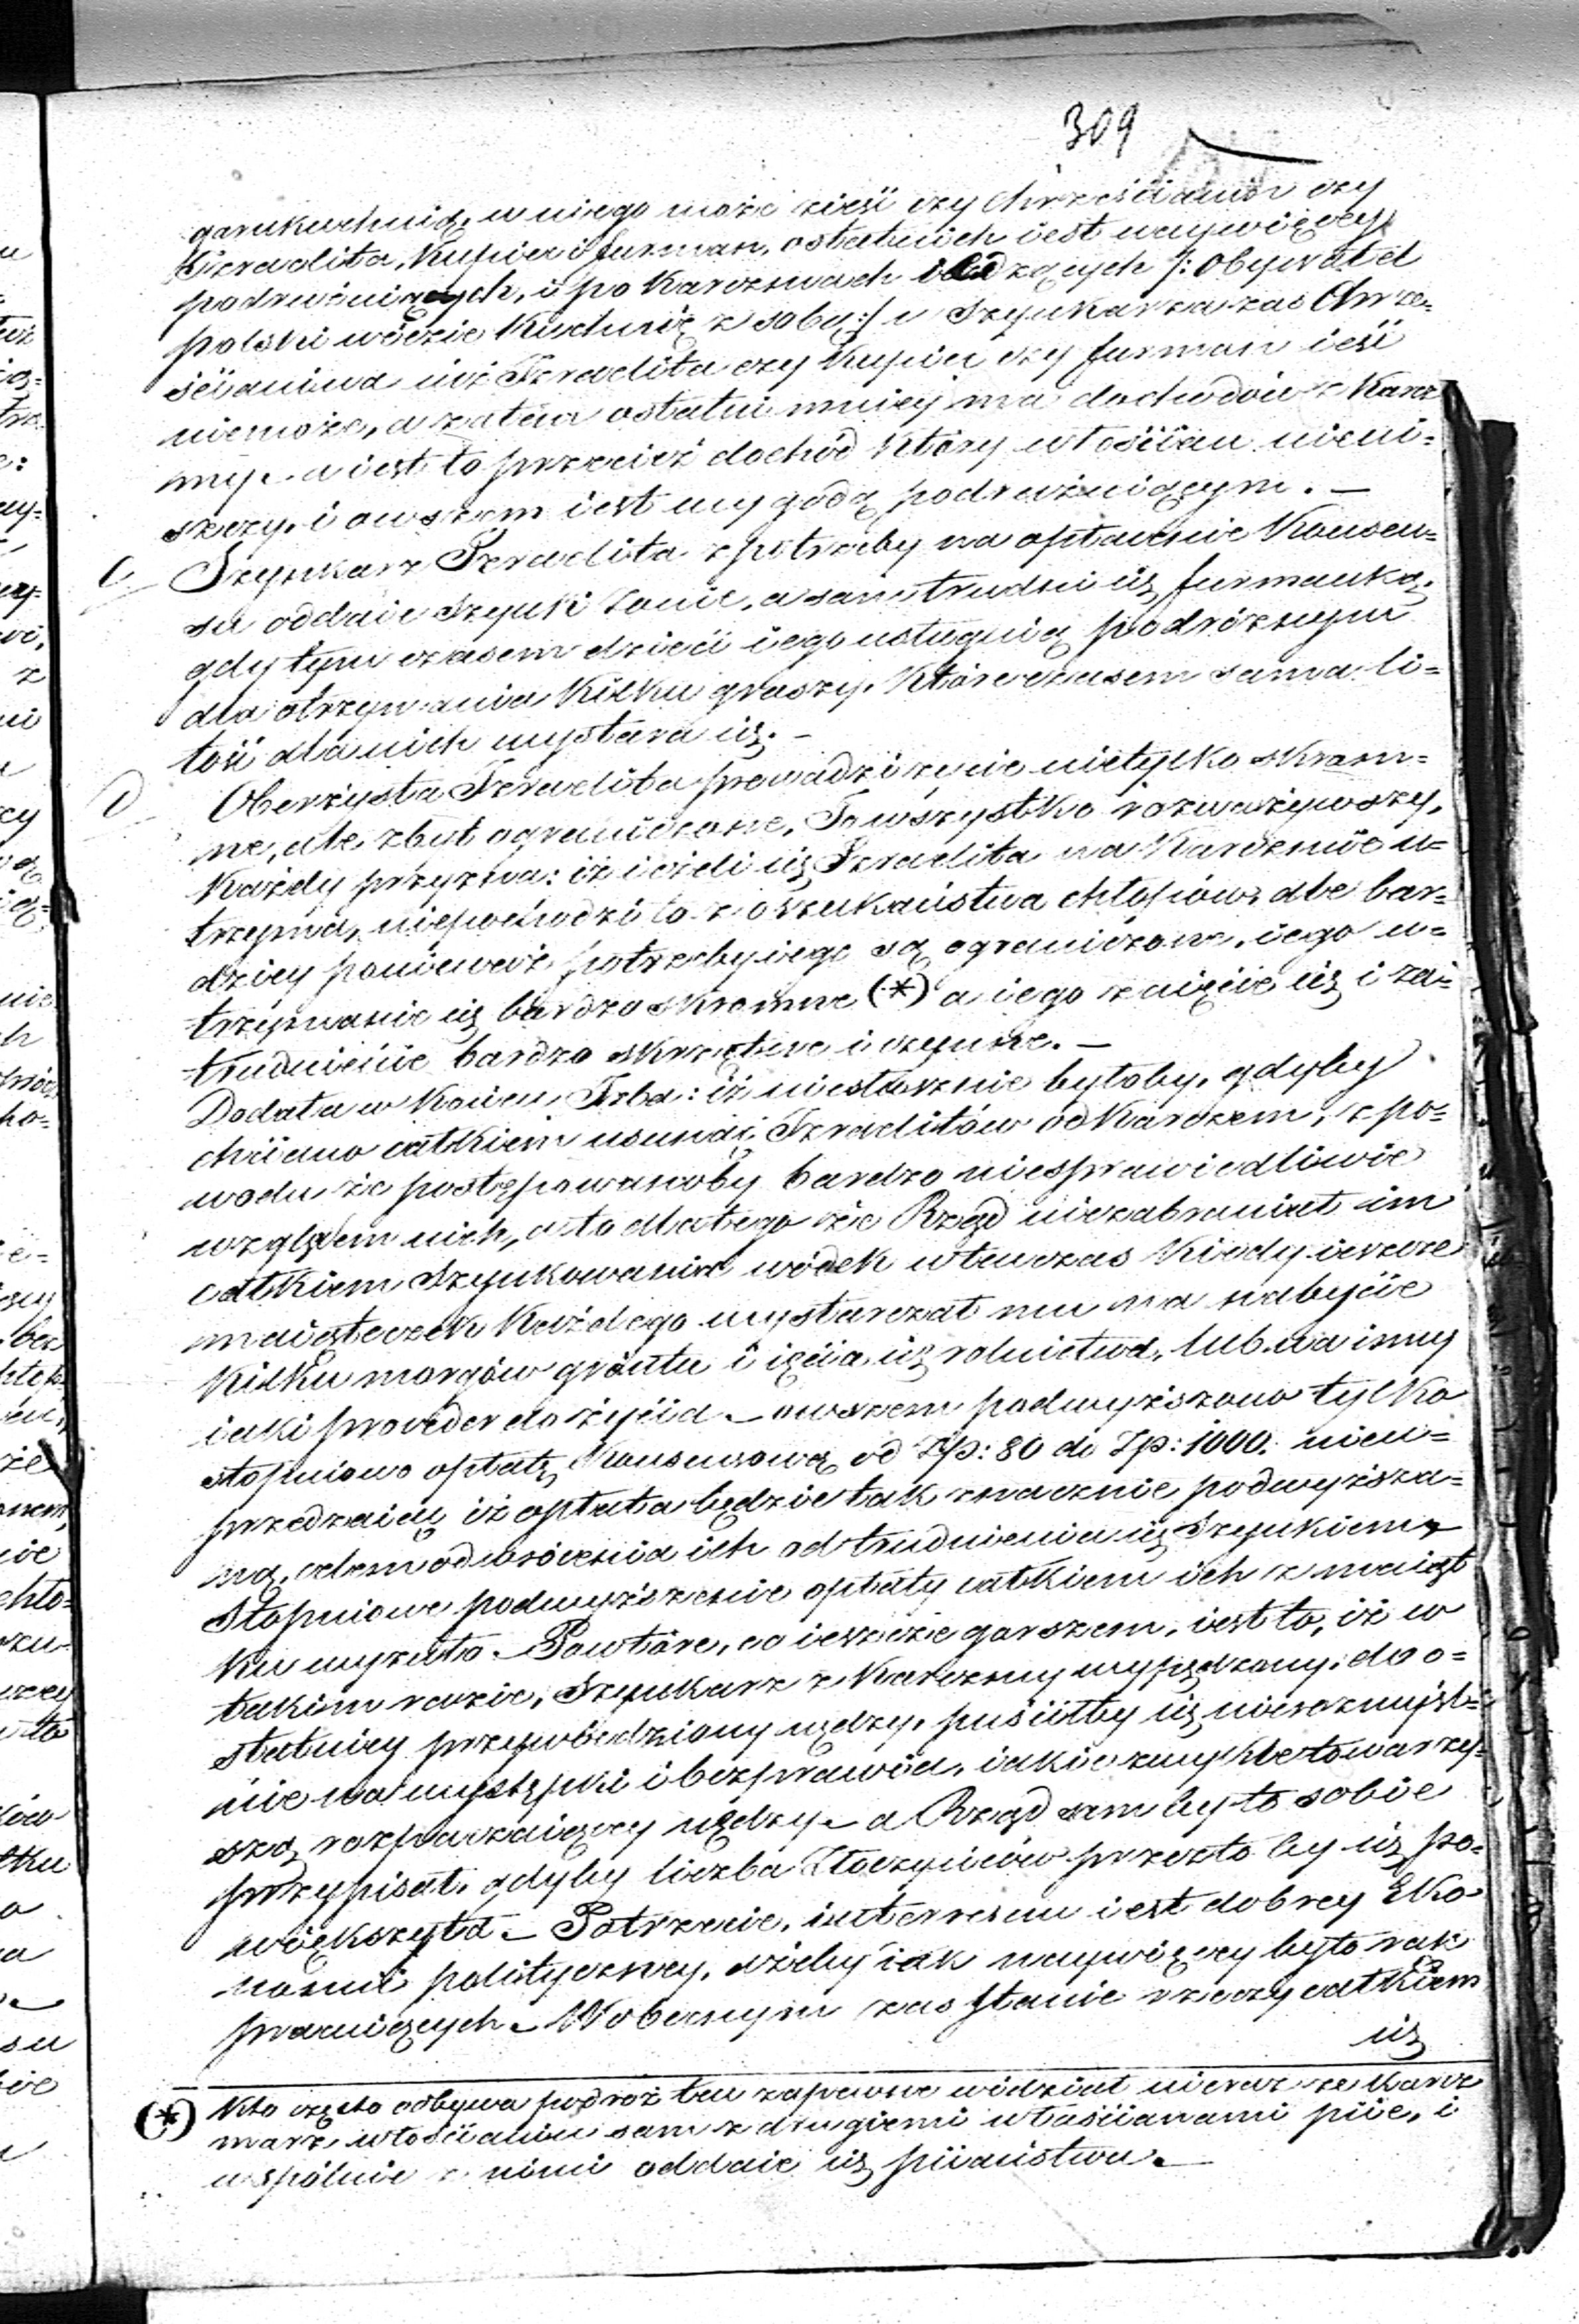 309
garukuchnią, u niego może zieść czy Chrześcianin czy
Izraelita, Kupiec i furman, ostatnich iest naywięcey
podrużuiących, i po Karczmach iedzących /: Obywatel
polski wiezie Kuchnię z sobą :/ u Szynkarza zaś Chrze=
ścianinа iuż Izraelita czy Kupiec czy furman ieść
niemoże, a zatém ostatni mniey ma dochodów z Karcz
my. a iest to przecież dochód który włościan nieni=
szczy, i owszem iest wygodą podrużuiącym. —
C Szynkarz Izraelita z potrzeby na opłacenie Konsen=
su oddaie Szynki żonie, a sam trudni się furmanką,
gdy tym czasem dzieci iego usługuią podróżnym
dla otrzymania kilku groszy, które czasem sama li=
tość dla nich wystara się. —
D Oberżysta Izraelita prowadzi życie nietylko skrom=
ne, ale zbyt ograniczone, To wszystko rozważywszy,
Każdy przyzna: iż ieżeli się Izraelita na Karczmie u=
trzyma, niepochodzi to z oszukaństwa chłopów, ale bar=
dziey ponieważ potrzeby iego są ograniczone, iego u=
trzymanie się bardzo skromne (*) a iego zaięcie się i za=
trudnienie bardzo skrzętne i czynne. —
Dodała w Końcu Izba: iż niesłusznie byłoby, gdyby
chciano całkiem usunąć Izraelitów od Karczem, z po=
wodu że postępowanoby bardzo niesprawiedliwie
względem nich, a to dlatego że Rząd niezabraniał im
całkiem Szynkowania wódek wtenczas kiedy ieszcze
maiąteczek Każdego wystarczał mu na nabycie
Kilku morgów gróntu i ięcia się rolnictwa, lub na inny
iaki proceder do życia — owszem podwyższono tylko
stopniowo opłatę Konsensową od Złp: 80 do Złp: 1000. nieu=
przedzaiąc iż opłata będzie tak znacznie podwyższa=
ną, celem odwrócenia ich od trudnienia się Szynkiem,
Stopniowe podwyższenie opłaty całkiem ich z maiąt
ku wyzuło. — Powtóre, co ieszcze gorszem, iest to, iż w
takim razie, Szynkarz z Karczmy wypędzony, do o=
statniey przywiedziony nędzy, puściłby się nierozmyśl=
nie na występki i bezprawia, iakie zwykle towarzy=
szą rozpaczaiącey nędzy — a Rząd sam by to sobie
przypisał, gdyby liczba Złoczyńców przez to by się po=
większyła. — Potrzecie, interesem iest dobrey Eko=
nomii polityczney, ażeby iak naywięcey było rąk
pracuiących. — W obecnym zaś stanie rzeczy całkiem
się
(*) Kto często odbywa podróż ten zapewne widział nieraz że Karcz
marz włościanin sam z drugiemi włościanami piie, i
wspólnie z nimi oddaie się piiaństwu. —